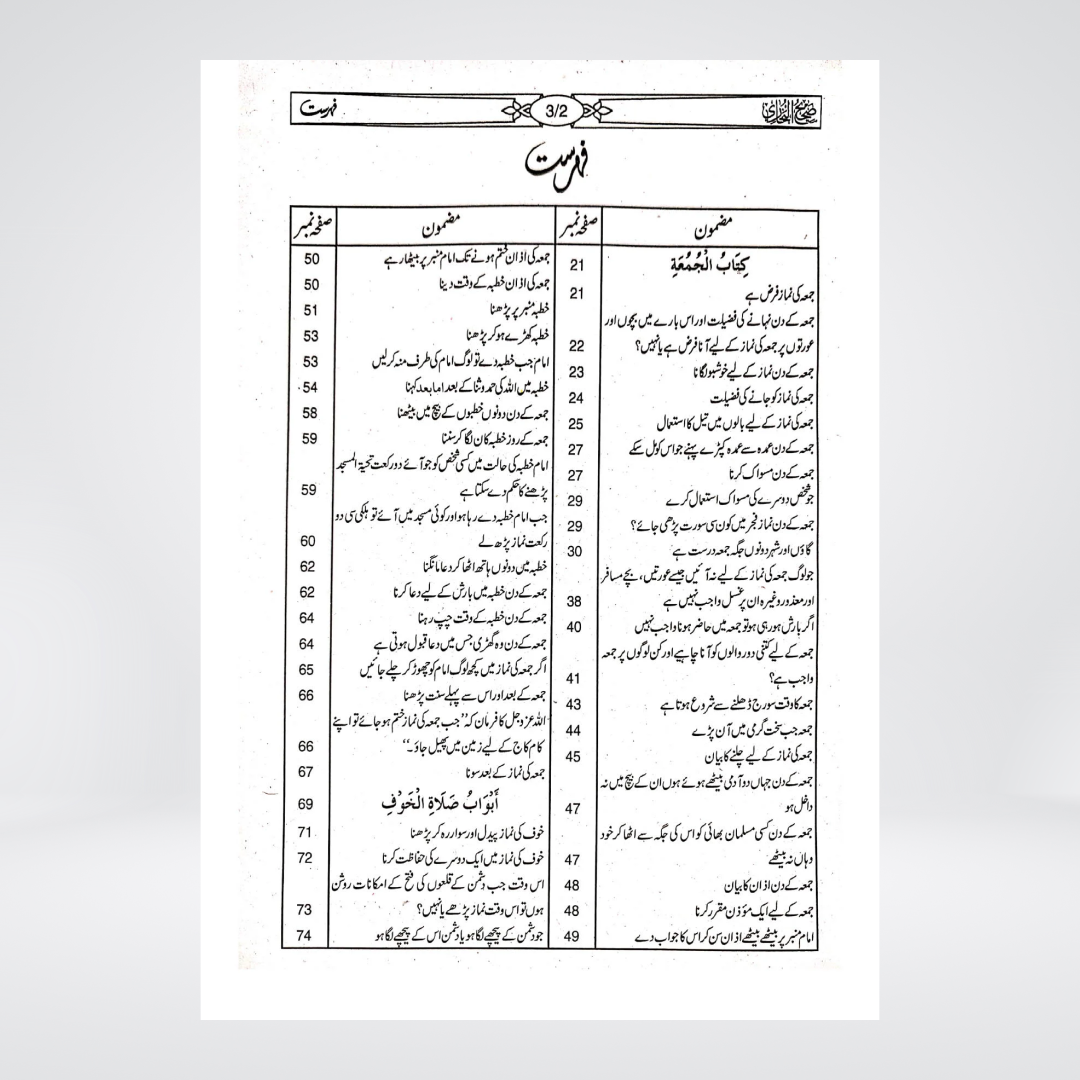 صحیح البخاری
3/2
فہرست
فہرست
مضمون صفحہ نمبر
كِتَابُ الْجُمُعَةِ 21
جمعہ کی نماز فرض ہے 21
جمعہ کے دن نہانے کی فضیلت اور اس بارے میں بچوں اور
عورتوں پر جمعہ کی نماز کے لیے آنا فرض ہے یا نہیں؟ 22
جمعہ کے دن نماز کے لیے خوشبو لگانا 23
جمعہ کی نماز کو جانے کی فضیلت 24
جمعہ کی نماز کے لیے بالوں میں تیل کا استعمال 25
جمعہ کے دن عمدہ سے عمدہ کپڑے پہنے جو اس کو مل سکے 27
جمعہ کے دن مسواک کرنا 27
جو شخص دوسرے کی مسواک استعمال کرے 29
جمعہ کے دن نماز فجر میں کون سی سورت پڑھی جائے؟ 29
گاؤں اور شہر دونوں جگہ جمعہ درست ہے 30
جو لوگ جمعہ کی نماز کے لیے نہ آئیں جیسے عورتیں، بچے مسافر
اور معذور وغیرہ ان پر غسل واجب نہیں ہے 38
اگر بارش ہو رہی ہو تو جمعہ میں حاضر ہونا واجب نہیں 40
جمعہ کے لیے کتنی دور والوں کو آنا چاہیے اور کن لوگوں پر جمعہ
واجب ہے؟ 41
جمعہ کا وقت سورج ڈھلنے سے شروع ہوتا ہے 43
جمعہ جب سخت گرمی میں آن پڑے 44
جمعہ کی نماز کے لیے چلنے کا بیان 45
جمعہ کے دن جہاں دو آدمی بیٹھے ہوئے ہوں ان کے بیچ میں نہ
داخل ہو 47
جمعہ کے دن کسی مسلمان بھائی کو اس کی جگہ سے اٹھا کر خود
وہاں نہ بیٹھے 47
جمعہ کے دن اذان کا بیان 48
جمعہ کے لیے ایک مؤذن مقرر کرنا 48
امام منبر پر بیٹھے بیٹھے اذان سن کر اس کا جواب دے 49
مضمون صفحہ نمبر
جمعہ کی اذان ختم ہونے تک امام منبر پر بیٹھا رہے 50
جمعہ کی اذان خطبہ کے وقت دینا 50
خطبہ منبر پر پڑھنا 51
خطبہ کھڑے ہو کر پڑھنا 53
امام جب خطبہ دے تو لوگ امام کی طرف منہ کر لیں 53
خطبہ میں اللہ کی حمد و ثنا کے بعد اما بعد کہنا 54
جمعہ کے دن دونوں خطبوں کے بیچ میں بیٹھنا 58
جمعہ کے روز خطبہ کان لگا کر سننا 59
امام خطبہ کی حالت میں کسی شخص کو جو آئے دو رکعت تحیۃ المسجد
پڑھنے کا حکم دے سکتا ہے 59
جب امام خطبہ دے رہا ہو اور کوئی مسجد میں آئے تو ہلکی سی دو
رکعت نماز پڑھ لے 60
خطبہ میں دونوں ہاتھ اٹھا کر دعا مانگنا 62
جمعہ کے دن خطبہ میں بارش کے لیے دعا کرنا 62
جمعہ کے دن خطبہ کے وقت چپ رہنا 64
جمعہ کے دن وہ گھڑی جس میں دعا قبول ہوتی ہے 64
اگر جمعہ کی نماز میں کچھ لوگ امام کو چھوڑ کر چلے جائیں 65
جمعہ کے بعد اور اس سے پہلے سنت پڑھنا 66
اللہ عزوجل کا فرمان کہ ”جب جمعہ کی نماز ختم ہو جائے تو اپنے
کام کاج کے لیے زمین میں پھیل جاؤ۔“ 66
جمعہ کی نماز کے بعد سونا 67
أَبْوَابُ صَلَاةِ الْخَوْفِ 69
خوف کی نماز پیدل اور سوار رہ کر پڑھنا 71
خوف کی نماز میں ایک دوسرے کی حفاظت کرنا 72
اس وقت جب دشمن کے قلعوں کی فتح کے امکانات روشن
ہوں تو اس وقت نماز پڑھے یا نہیں؟ 73
جو دشمن کے پیچھے لگا ہو یا دشمن اس کے پیچھے لگا ہو 74